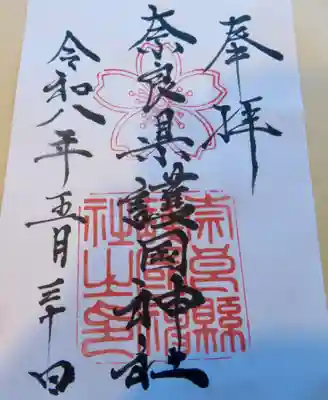 奉拝
奈良県護国神社
令和八年五月三十日
奈良縣護國神社之印